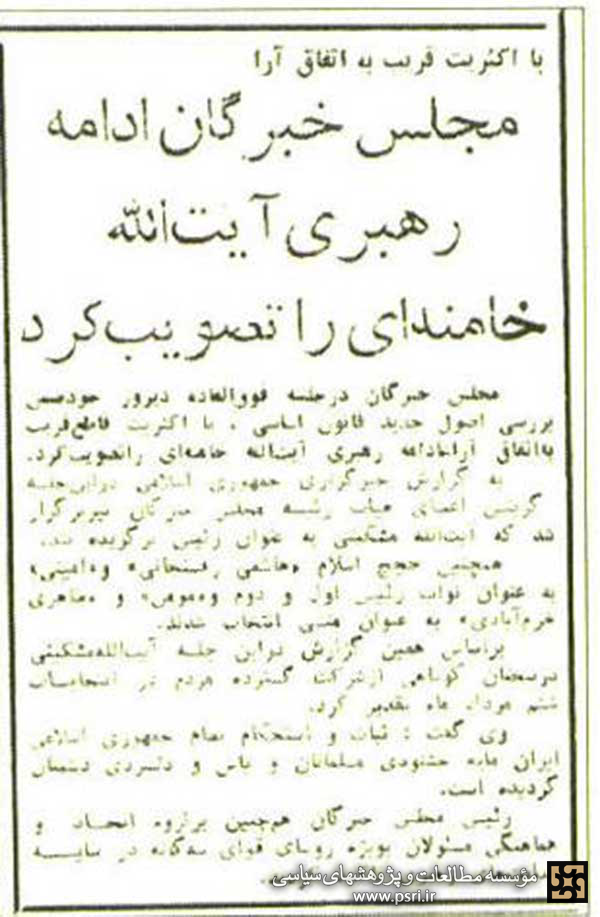 با اکثریت قریب به اتفاق آرا
مجلس خبرگان ادامه
رهبری آیت‌الله
خامنه‌ای را تصویب‌کرد
مجلس خبرگان درجلسه فوق‌العاده دیروز خودضمن
بررسی اصول جدید قانون اساسی ، با اکثریت قاطع‌قریب
به‌اتفاق آراءادامه رهبری آیت‌اله خامنه‌ای راتصویب‌کرد.
به گزارش خبرگزاری جمهوری اسلامی دراین‌جلسه
گزینش اعضای هیات رئیسه مجلس خبرگان نیزبرگزار
شد که آیت‌الله مشکینی به عنوان رئیس برگزیده شد.
همچنین حجج اسلام «هاشمی رفسنجانی» و«امینی»
به عنوان نواب رئیس اول و دوم و«مومن» و «طاهری
خرم‌آبادی» به عنوان منشی انتخاب شدند.
براساس همین گزارش دراین جلسه آیت‌الله‌مشکینی
درسخنان کوتاهی ازشرکت گسترده مردم در انتخابات
ششم مرداد ماه تقدیر کرد.
وی گفت : ثبات و استحکام نظام جمهوری اسلامی
ایران مایه خشنودی مسلمانان و یاس و دلسردی دشمنان
گردیده است.
رئیس مجلس خبرگان همچنین برلزوم اتحاد و
هماهنگی مسئولان بویژه روسای قوای سه‌گانه در سایه
مؤسسه مطالعات و پژوهشهای سیاسی
www.psri.ir